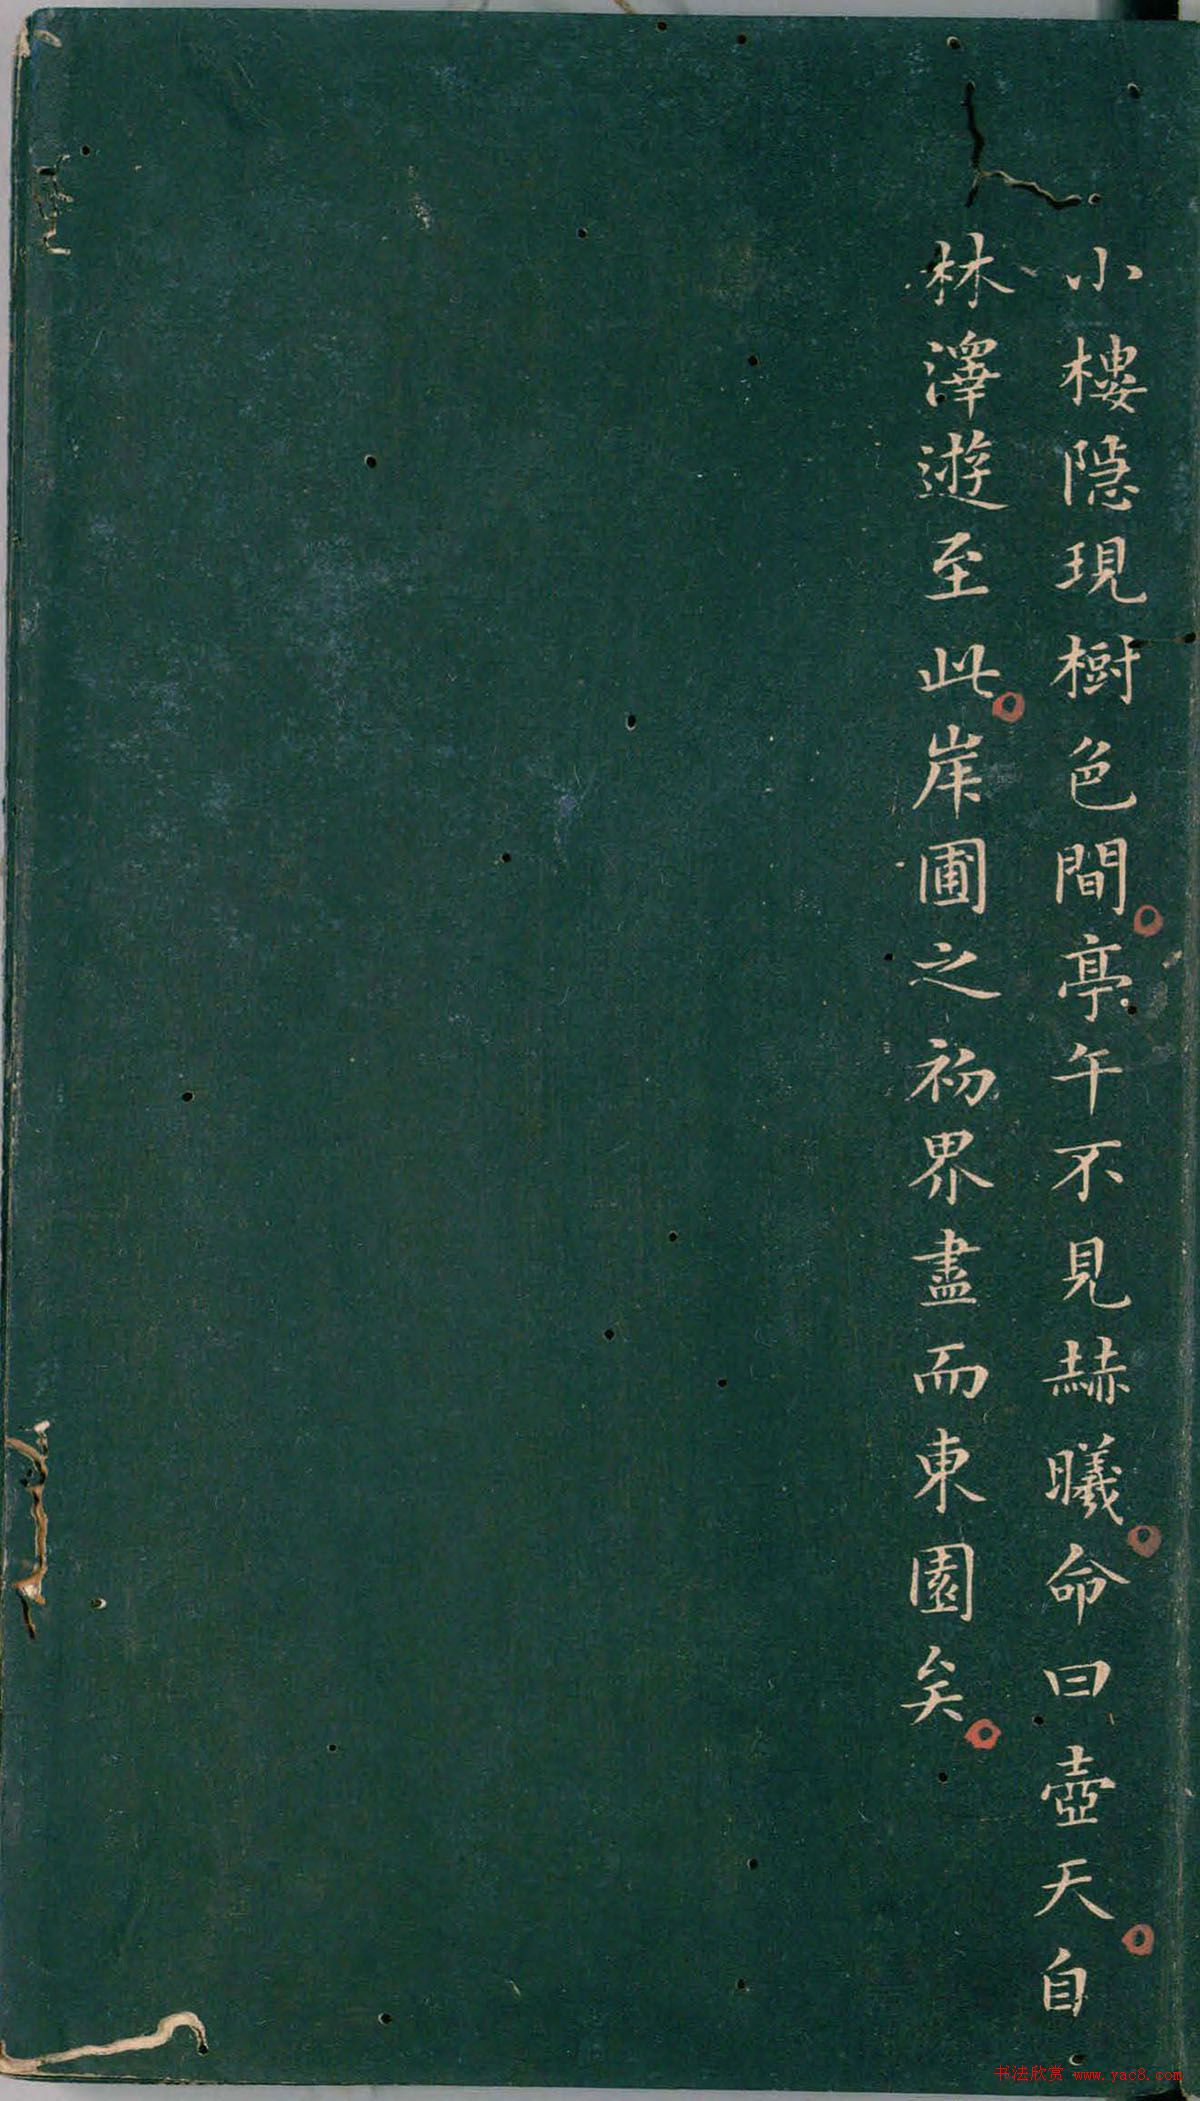 小樓隱現樹色間亭午不見赫曦命曰壺天自
林澤遊至此岸圃之初界盡而東園矣
书法欣赏 www.yac8.com